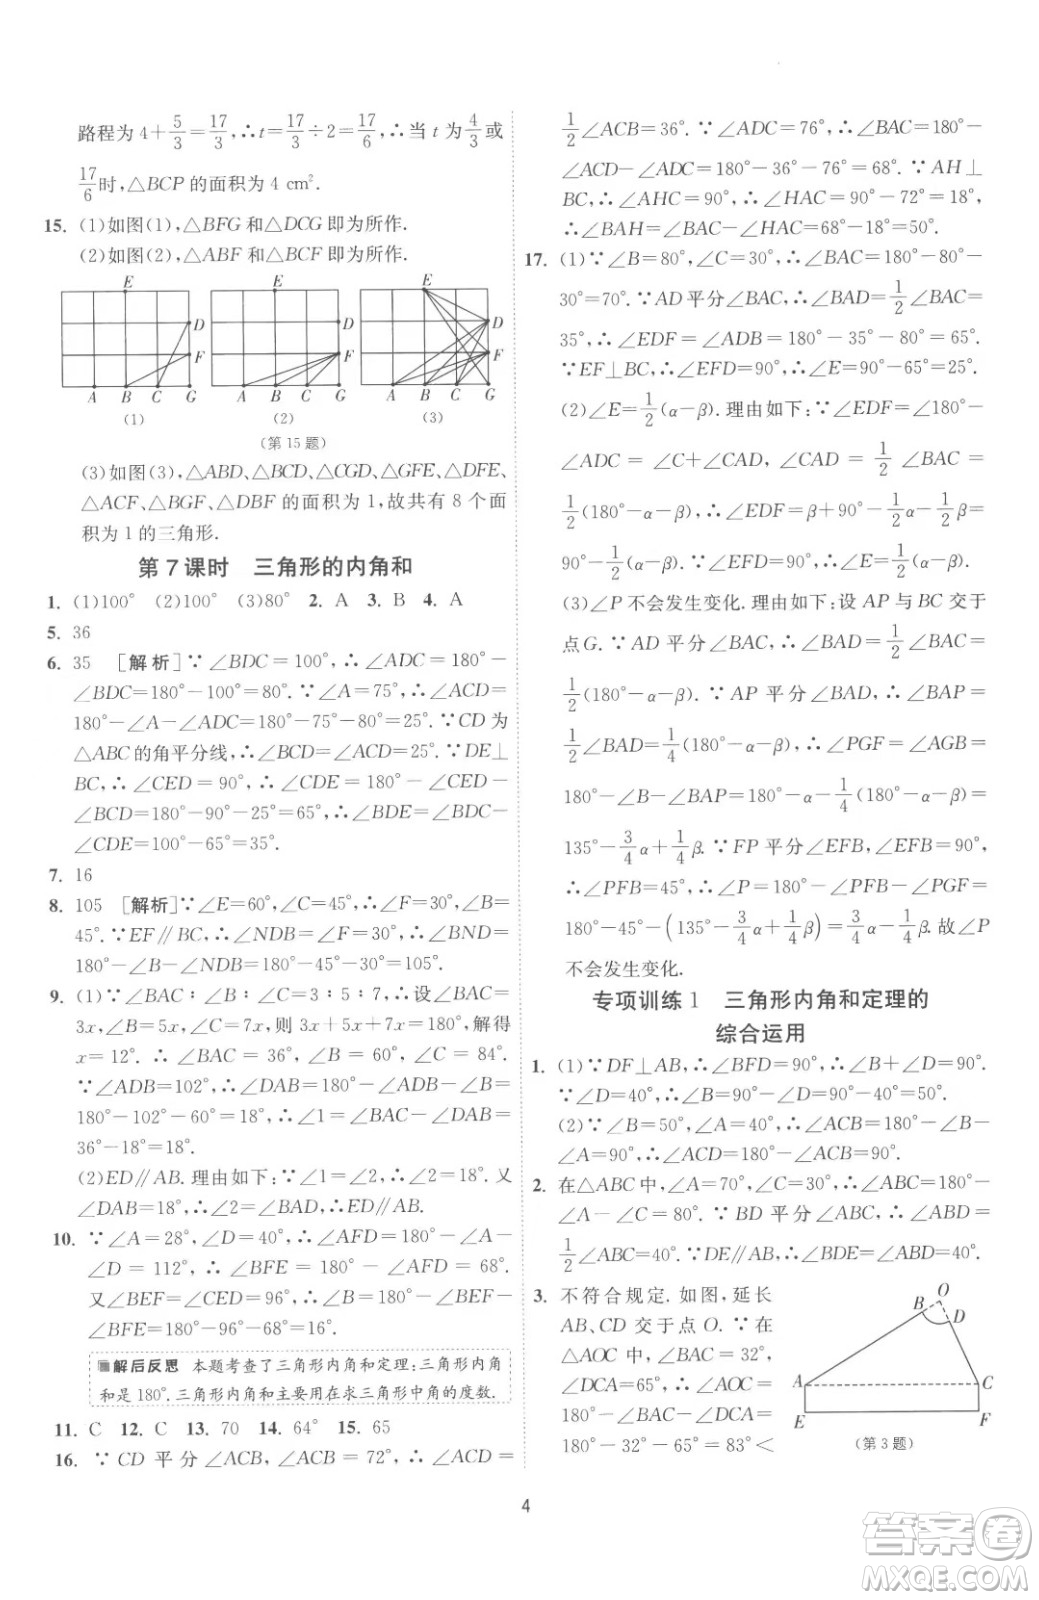 路程为 4+5/3=17/3,∴t=17/3÷2=17/6,∴当 t 为 4/3 或
17/6 时,△BCP 的面积为 4 cm².
15. (1)如图(1),△BFG 和△DCG 即为所作.
(2)如图(2),△ABF 和△BCF 即为所作.
E D F A B C G
(1)
E D F A B C G
(2)
E D F A B C G
(3)
(第 15 题)
(3)如图(3),△ABD、△BCD、△CGD、△GFE、△DFE、
△ACF、△BGF、△DBF 的面积为 1,故共有 8 个面
积为 1 的三角形.
第 7 课时 三角形的内角和
1. (1)100° (2)100° (3)80° 2. A 3. B 4. A
5. 36
6. 35 [解析]∵∠BDC=100°,∴∠ADC=180°-
∠BDC=180°-100°=80°.∵∠A=75°,∴∠ACD=
180°-∠A-∠ADC=180°-75°-80°=25°.∵CD 为
△ABC 的角平分线,∴∠BCD=∠ACD=25°.∵DE⊥
BC,∴∠CED=90°,∴∠CDE=180°-∠CED-
∠BCD=180°-90°-25°=65°,∴∠BDE=∠BDC-
∠CDE=100°-65°=35°.
7. 16
8. 105 [解析]∵∠E=60°,∠C=45°,∴∠F=30°,∠B=
45°.∵EF∥BC,∴∠NDB=∠F=30°,∴∠BND=
180°-∠B-∠NDB=180°-45°-30°=105°.
9. (1)∵∠BAC∶∠B∶∠C=3∶5∶7,∴设∠BAC=
3x,∠B=5x,∠C=7x,则 3x+5x+7x=180°,解得
x=12°.∴∠BAC=36°,∠B=60°,∠C=84°.
∵∠ADB=102°,∴∠DAB=180°-∠ADB-∠B=
180°-102°-60°=18°,∴∠1=∠BAC-∠DAB=
36°-18°=18°.
(2)ED∥AB.理由如下:∵∠1=∠2,∴∠2=18°.又
∠DAB=18°,∴∠2=∠BAD,∴ED∥AB.
10. ∵∠A=28°,∠D=40°,∴∠AFD=180°-∠A-
∠D=112°,∴∠BFE=180°-∠AFD=68°.
又∠BEF=∠CED=96°,∴∠B=180°-∠BEF-
∠BFE=180°-96°-68°=16°.
解后反思 本题考查了三角形内角和定理:三角形内角
和是 180°.三角形内角和主要用在求三角形中角的度数.
11. C 12. C 13. 70 14. 64° 15. 65
16. ∵CD 平分∠ACB,∠ACB=72°,∴∠ACD=
1/2∠ACB=36°.∵∠ADC=76°,∴∠BAC=180°-
∠ACD-∠ADC=180°-36°-76°=68°.∵AH⊥
BC,∴∠HAC=90°-∠ACB=90°-72°=18°,
∴∠BAH=∠BAC-∠HAC=68°-18°=50°.
17. (1)∵∠B=80°,∠C=30°,∴∠BAC=180°-80°-
30°=70°.∵AD 平分∠BAC,∴∠DAC=1/2∠BAC=
35°,∴∠EDF=∠DAC+∠C=35°+30°=65°.
∵EF⊥BC,∴∠E=90°-∠EDF=90°-65°=25°.
(2)∠E=1/2(α-β).理由如下:∵∠EDF=180°-
∠ADC=∠C+∠CAD,∠CAD=1/2∠BAC=
1/2(180°-α-β),∴∠EDF=β+90°-1/2α-1/2β=
90°-1/2(α-β).∵∠EFD=90°,∴∠E=1/2(α-β).
(3)∠P 不会发生变化.理由如下:设 AP 与 BC 交于
点G.∵AD 平分∠BAC,∴∠BAD=1/2∠BAC=
1/2(180°-α-β).∵AP 平分∠BAD,∴∠BAP=
1/2∠BAD=1/4(180°-α-β),∴∠PGF=∠AGB=
180°-∠B-∠BAP=180°-α-1/4(180°-α-β)=
135°-3/4α+1/4β.∵FP 平分∠EFB,∠EFB=90°,
∴∠PFB=45°,∴∠P=180°-∠PFB-∠PGF=
180°-45°-(135°-3/4α+1/4β)=3/4α-1/4β.故∠P
不会发生变化.
专项训练 1 三角形内角和定理的
综合运用
1. (1)∵DF⊥AB,∴∠BFD=90°,∴∠B+∠D=90°.
∵∠D=40°,∴∠B=90°-∠D=90°-40°=50°.
(2)∵∠B=50°,∠A=40°,∴∠ACB=180°-∠B-
∠A=90°,∴∠ACD=180°-∠ACB=90°.
2. 在△ABC 中,∵∠A=70°,∠C=30°,∴∠ABC=180°-
∠A-∠C=80°.∵BD 平分∠ABC,∴∠ABD=
1/2∠ABC=40°.∵DE∥AB,∴∠BDE=∠ABD=40°.
3. 不符合规定. 如图,延长
AB、CD 交于点 O.∵在
△AOC 中,∠BAC=32°,
∠DCA=65°,∴∠AOC=
180°-∠BAC-∠DCA=
180°-32°-65°=83°<
O B D A C E F
(第 3 题)
4
答案卷